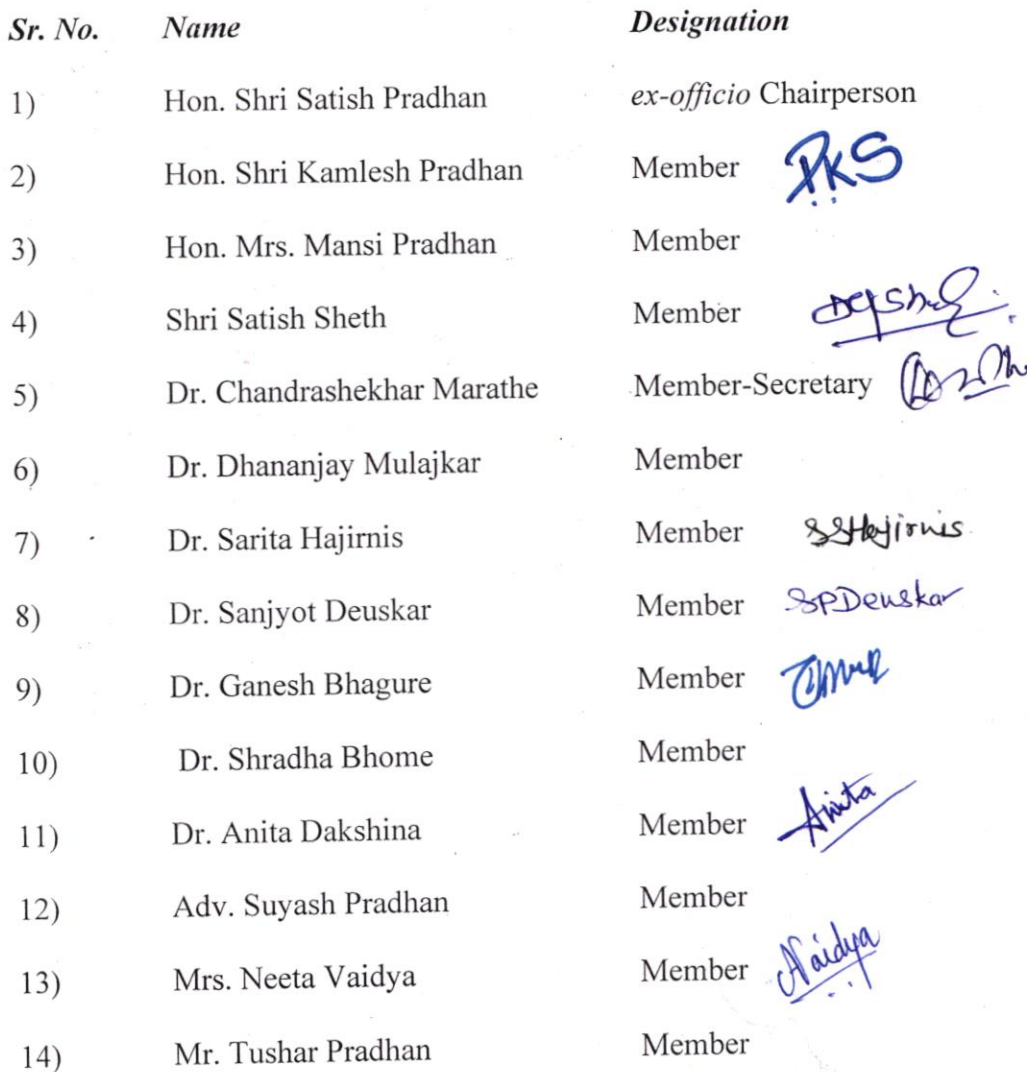 Sr. No. Name Designation
1) Hon. Shri Satish Pradhan ex-officio Chairperson
2) Hon. Shri Kamlesh Pradhan Member PKS
3) Hon. Mrs. Mansi Pradhan Member
4) Shri Satish Sheth Member
5) Dr. Chandrashekhar Marathe Member-Secretary
6) Dr. Dhananjay Mulajkar Member
7) Dr. Sarita Hajirnis Member SSHajirnis
8) Dr. Sanjyot Deuskar Member SPDeuskar
9) Dr. Ganesh Bhagure Member
10) Dr. Shradha Bhome Member
11) Dr. Anita Dakshina Member Anita
12) Adv. Suyash Pradhan Member
13) Mrs. Neeta Vaidya Member NVaidya
14) Mr. Tushar Pradhan Member